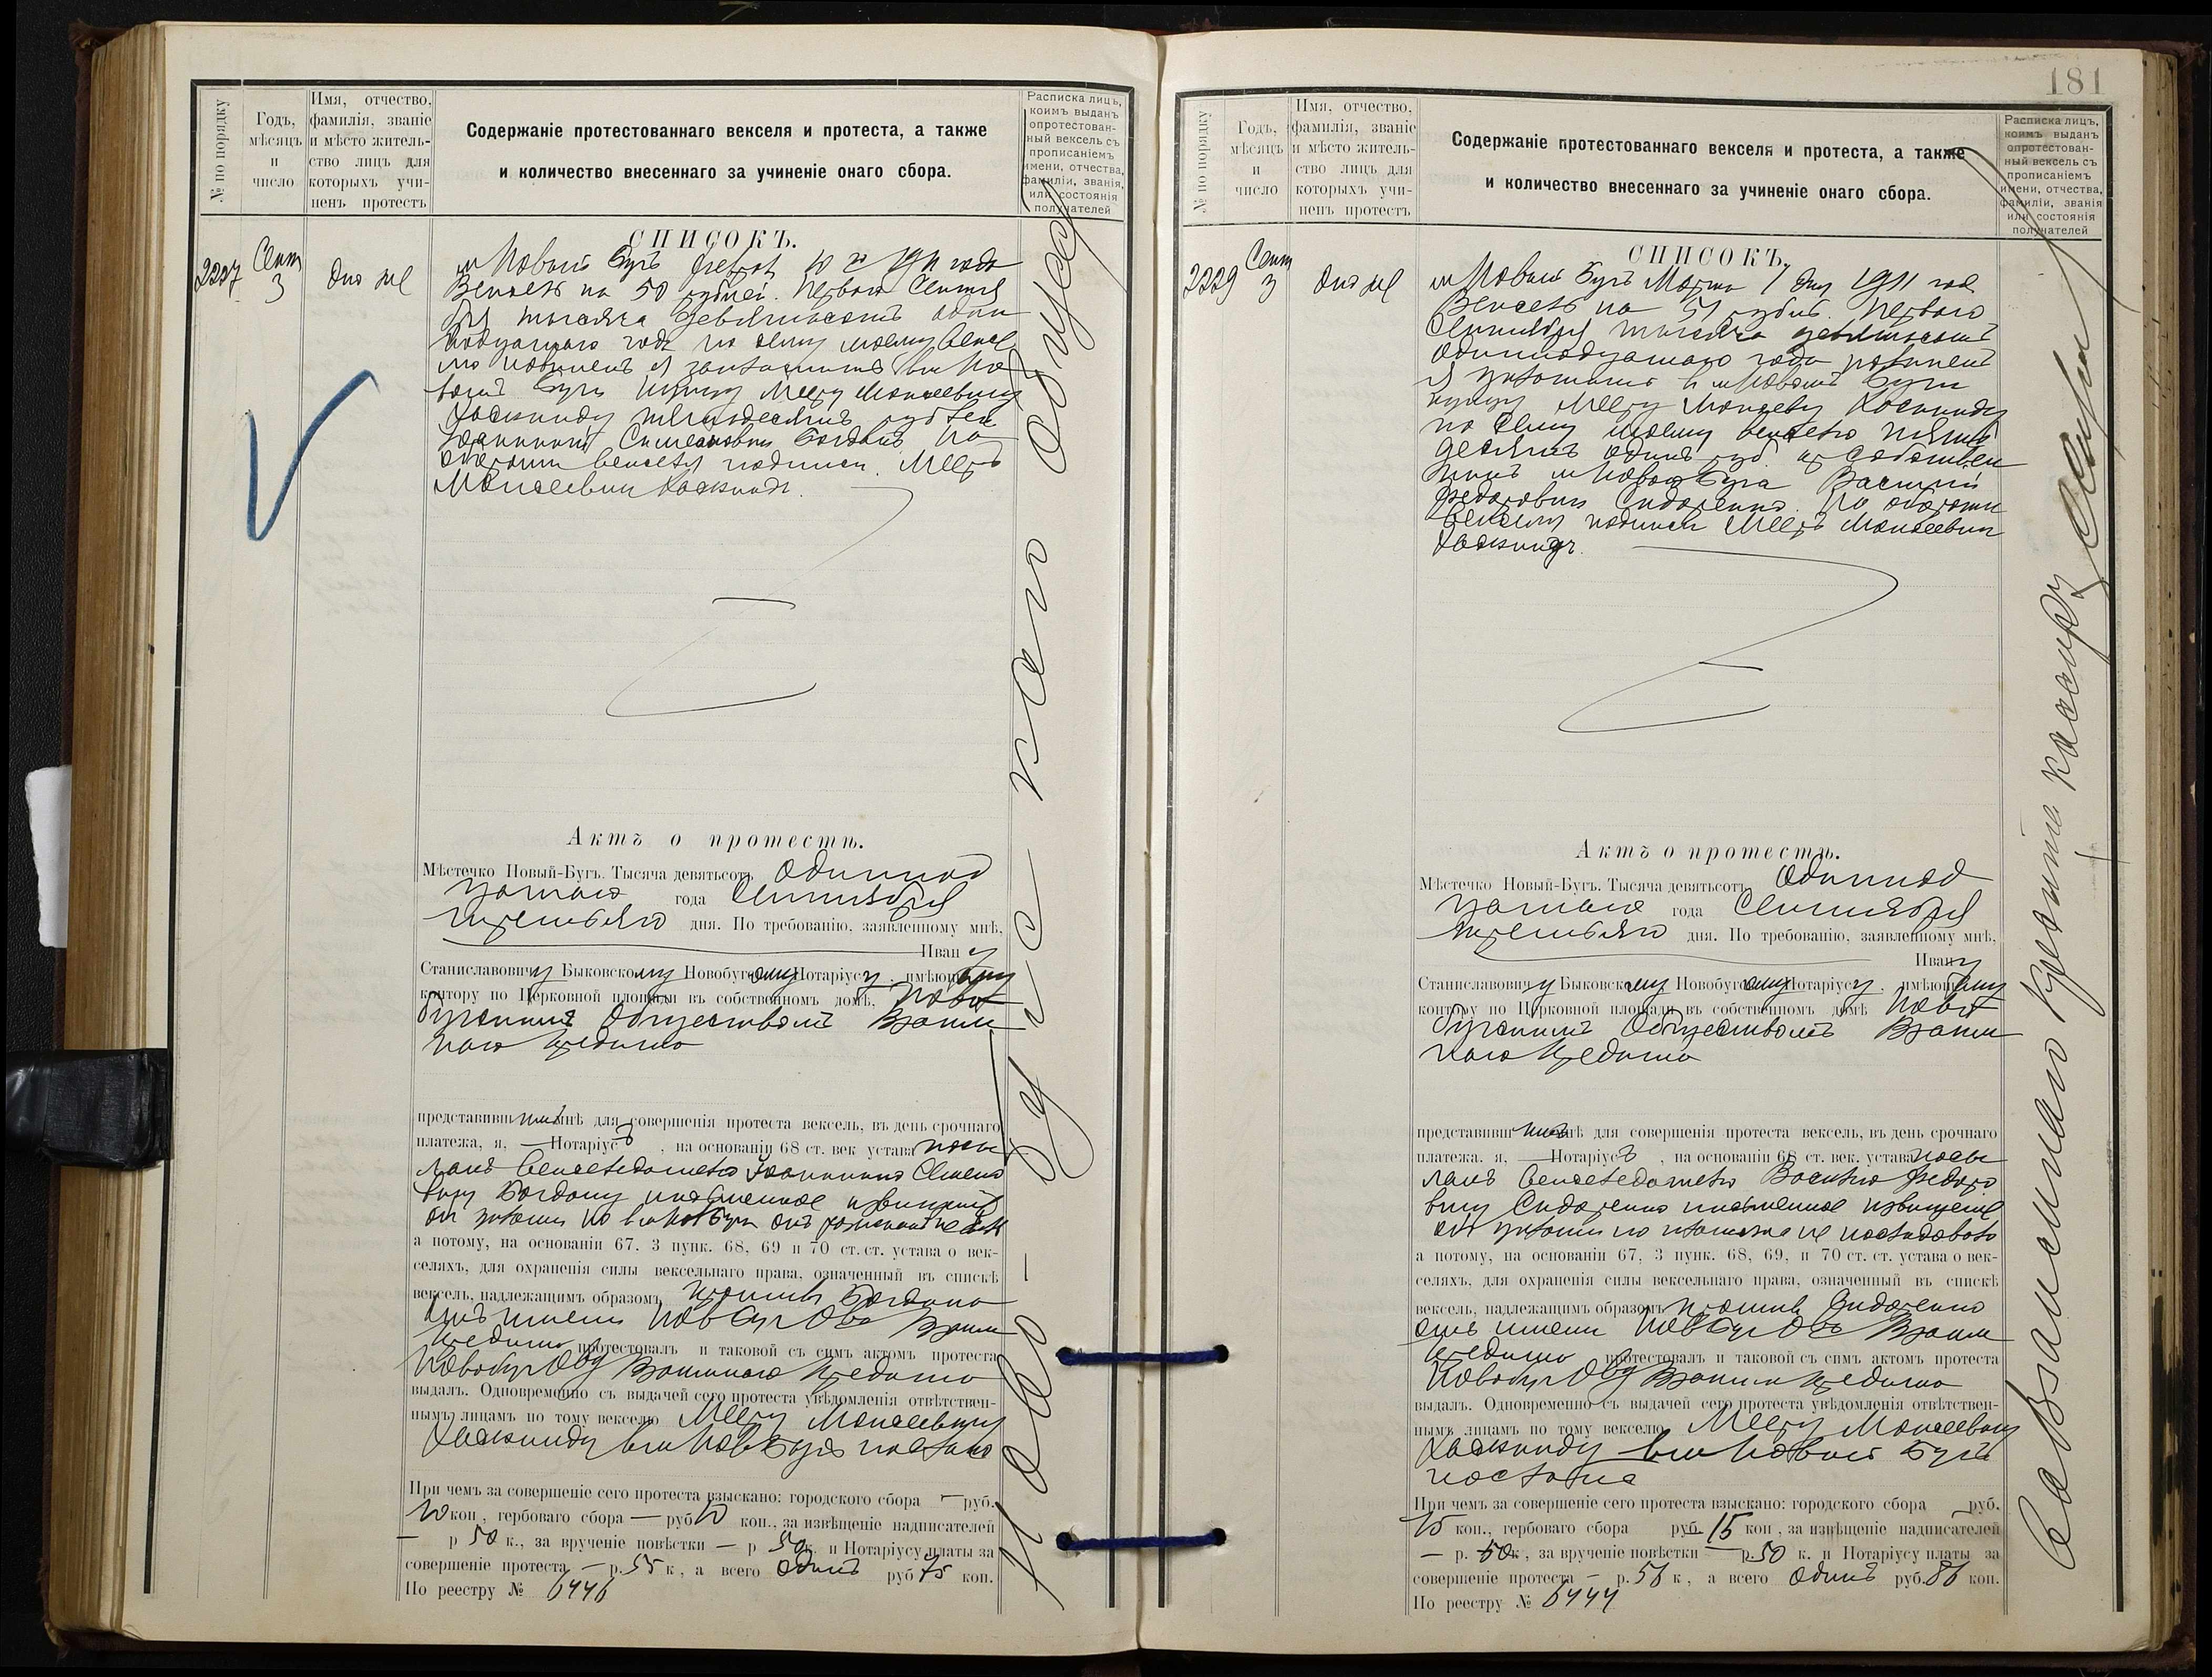 № по порядку
Годъ, мѣсяцъ и число
Имя, отчество, фамилія, званіе и мѣсто жительство лицъ для которыхъ учиненъ протестъ
Содержаніе протестованнаго векселя и протеста, а также
и количество внесеннаго за учиненіе онаго сбора.
Расписка лицъ,
коимъ выданъ
опротестован-
ный вексель съ
прописаніемъ
имени, отчества,
фамиліи, званія,
или состоянія
получателей
2227
Сент
3
Оно же
СПИСОКЪ.
м Новый Бугъ февра 10 1911 года
Вексель на 50 рублей. Перваго Сентя
бря тысяча девятьсотъ один
надцатаго года по сему моему вексе
лю повиненъ я заплатить въ м Но
вомъ Бугѣ купцу Мееру Моисеевичу
Хаскинду пятьдесятъ рублей
Семеновичъ Богданъ. На
оборотѣ векселя подписи. Мееръ
Моисеевичъ Хаскиндъ.
Актъ о протестѣ.
Мѣстечко Новый-Бугъ. Тысяча девятьсотъ одиннад
цатаго года Сентября
третьяго дня. По требованію, заявленному мнѣ,
Ивану
Станиславовичу Быковскому Новобугскому Нотаріусу, имѣющему
контору по Церковной площади въ собственномъ домѣ, Ново
бугскимъ Обществомъ Взаим
наго Кредита
представившимъ мнѣ для совершенія протеста вексель, въ день срочнаго
платежа, я, Нотаріусъ, на основаніи 68 ст. век устава посы
лалъ векселедателю Семено
вичу Богдану письменное извѣщеніе
а потому, на основаніи 67. 3 пунк. 68, 69 и 70 ст. ст. устава о век-
селяхъ, для охраненія силы вексельнаго права, означенный въ спискѣ
вексель, надлежащимъ образомъ противъ Богдана
отъ имени Нов Буг Об Взаим
Кредита протестовалъ и таковой съ симъ актомъ протеста
Новобуг Общ Взаимнаго Кредита
выдалъ. Одновременно съ выдачей сего протеста увѣдомленія отвѣтствен-
нымъ лицамъ по тому векселю Мееру Моисеевичу
Хаскинду въ м Нов Бугъ послано
При чемъ за совершеніе сего протеста взыскано: городского сбора — руб.
10 коп, гербоваго сбора — руб 10 коп., за извѣщеніе надписателей
— р 50 к., за врученіе повѣстки — р 50 к. и Нотаріусу платы за
совершеніе протеста — р. 55 к, а всего Одинъ руб 75 коп.
По реестру № 6446
181
№ по порядку
Годъ, мѣсяцъ и число
Имя, отчество, фамилія, званіе и мѣсто жительство лицъ для которыхъ учиненъ протестъ
Содержаніе протестованнаго векселя и протеста, а также
и количество внесеннаго за учиненіе онаго сбора.
Расписка лицъ,
коимъ выданъ
опротестован-
ный вексель съ
прописаніемъ
имени, отчества,
фамиліи, званія
или состоянія
получателей
2229
Сент
3
Оно же
СПИСОКЪ.
м Новый Бугъ Марта 1 дня 1911 года
Вексель на 51 рубль. Перваго
Сентября тысяча девятьсотъ
одиннадцатаго года повиненъ
я уплатить въ м Новомъ Бугѣ
купцу Мееру Моисееву Хаскинду
по сему моему векселю пять
десятъ одинъ руб. собствен
никъ м Новаго Буга Василій
Федоровичъ Сидоренко. На оборотѣ
векселя подписи Мееръ Моисеевичъ
Хаскиндъ.
Актъ о протестѣ.
Мѣстечко Новый-Бугъ. Тысяча девятьсотъ одиннад
цатаго года Сентября
третьяго дня. По требованію, заявленному мнѣ,
Ивану
Станиславовичу Быковскому Новобугскому Нотаріусу, имѣющему
контору по Церковной площади въ собственномъ домѣ Ново
бугскимъ Обществомъ Взаим
наго Кредита
представившимъ мнѣ для совершенія протеста вексель, въ день срочнаго
платежа. я, Нотаріусъ, на основаніи 68 ст. век. устава посы
лалъ векселедателю Василію Федоро
вичу Сидоренко письменное извѣщеніе
но платежа не послѣдовало
а потому, на основаніи 67, 3 пунк. 68, 69, и 70 ст. ст. устава о век-
селяхъ, для охраненія силы вексельнаго права, означенный въ спискѣ
вексель, надлежащимъ образомъ противъ Сидоренко
отъ имени Нов Буг Об Взаим
Кредита протестовалъ и таковой съ симъ актомъ протеста
Новобуг Общ Взаимн Кредита
выдалъ. Одновременно съ выдачей сего протеста увѣдомленія отвѣтствен-
нымъ лицамъ по тому векселю Мееру Моисеевичу
Хаскинду въ м Новый Бугъ
послана
При чемъ за совершеніе сего протеста взыскано: городского сбора руб.
15 коп., гербоваго сбора руб. 15 коп, за извѣщеніе надписателей
— р. 50 к, за врученіе повѣстки — р. 50 к. и Нотаріусу платы за
совершеніе протеста — р. 56 к, а всего Одинъ руб. 86 коп.
По реестру № 6444
Взаимнаго Кредита кассиръ